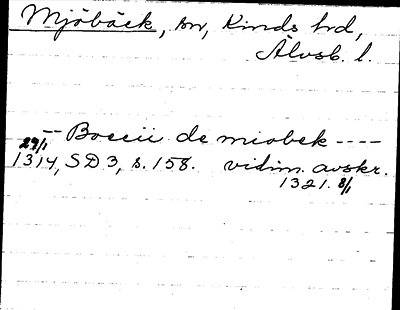 Mjöbäck, sn, Kinds hd,
Älvsb. l.
-- Boecii de miobek ----
29/1 1314, SD 3, s. 158. vidim. avskr.
1321. 8/1